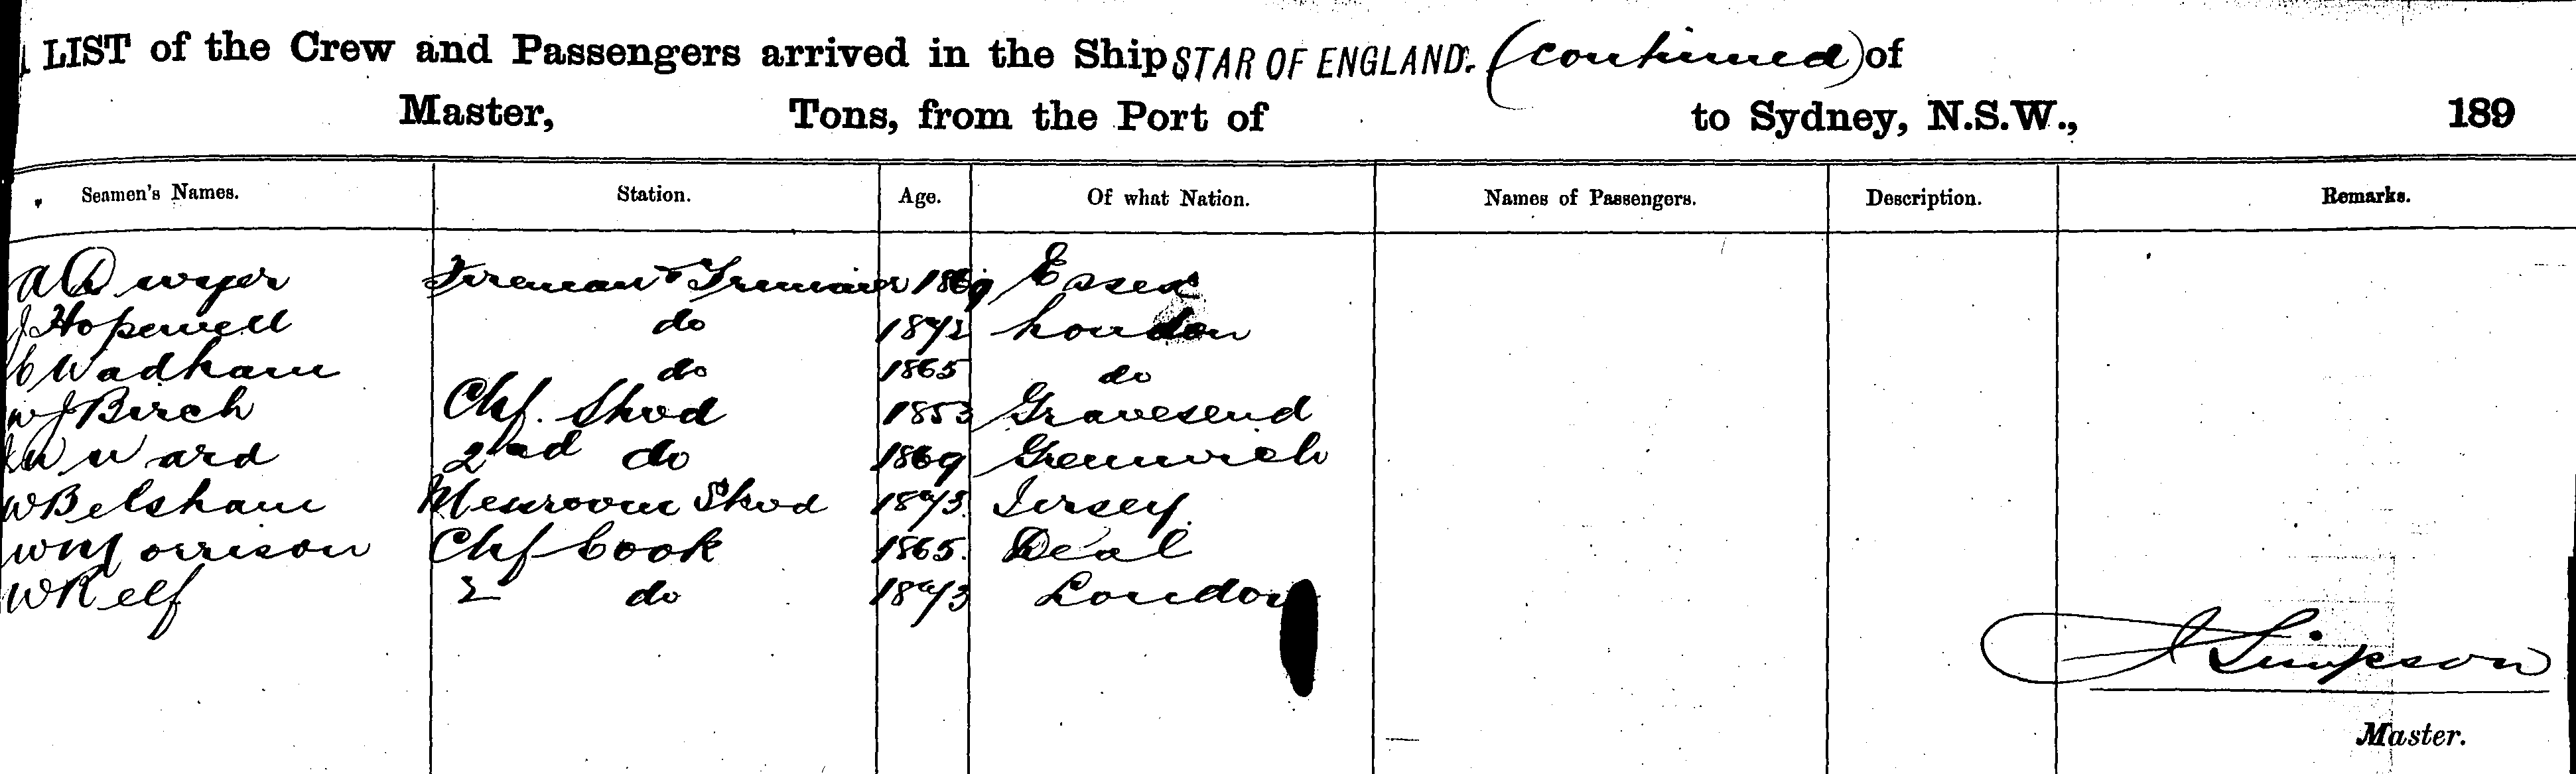 LIST of the Crew and Passengers arrived in the Ship STAR OF ENGLAND. (continued) of
Master, Tons, from the Port of to Sydney, N.S.W., 189
Seamen's Names. Station. Age. Of what Nation. Names of Passengers. Description. Remarks.
A Dwyer Fireman & Trimmer 1869 Essex
J Hopewell do 1872 London
C Wadham do 1865 do
W J Birch Chf. Stwd 1853 Gravesend
W Ward 2nd do 1869 Greenwich
W Belsham Messroom Stwd 1873 Jersey
W Morrison Chf Cook 1865. Deal
W Relf 2 do 1873 London
J Simpson
Master.